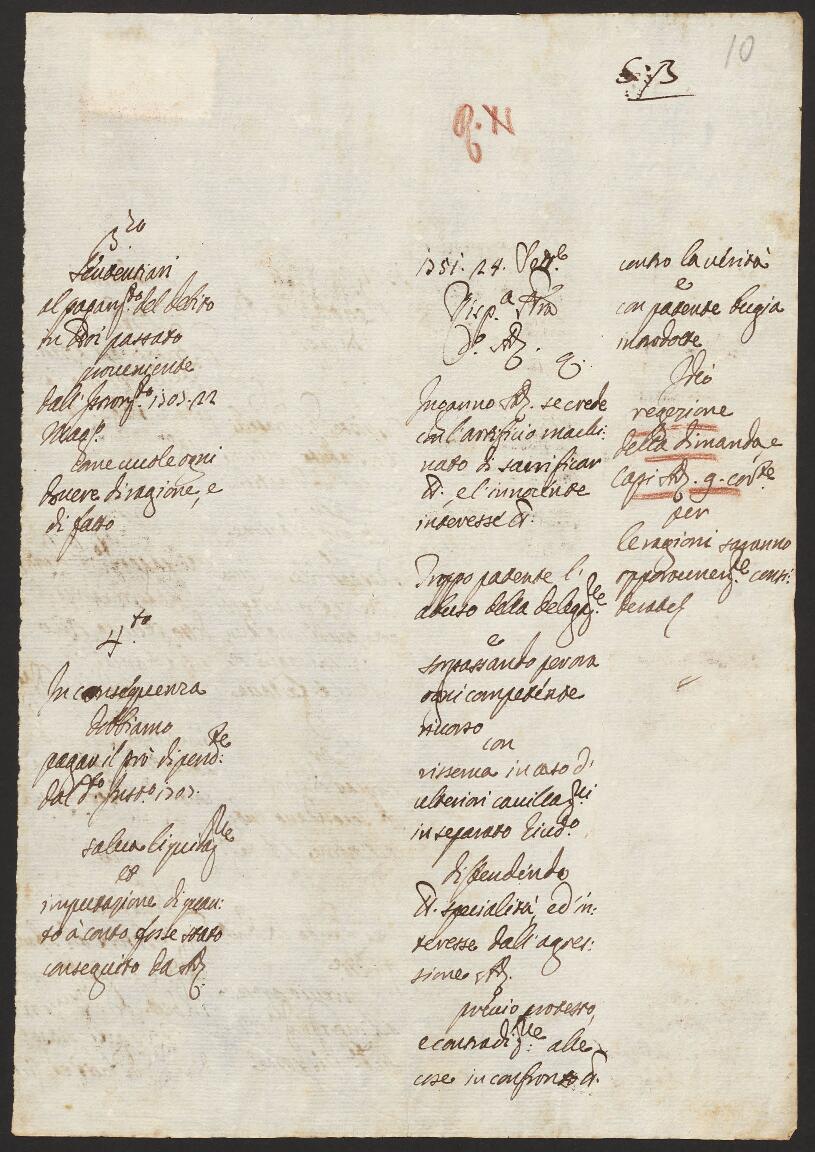 10
S: B
3.zo
Sentenziari
al pagam.to del debito
in Noi passato
proveniente
dall' Istrom.to 1707. 22
Magg.o
come vuole ogni
dovere di ragione, e
di fatto
4.to
In conseguenza
dobbiamo
pagar il prò dipend:te
dal d.to Instr.o 1707.
salva liquidaz.ne
et
imputazione di quan:
to à conto fosse stato
conseguito da
1751. 24.
Risp.a
Inganno se crede
con l'artificio machi:
nato di sacrificar
e l'innocente
interesse
Troppo patente l'
abuso della delegaz.ne
e
sorpassando per ora
ogni competente
ricorso
con
risserva in caso d'
ulteriori cavillaz.ni
in separato Giud.o
diffendendo
specialità, ed in:
teresse dall' agres:
sione
previo protesto,
e contradiz.ne alle
cose in confronto
contro la verità
e
con patente bugia
introdotte
Titio
regezione
della dimanda, e
Capi
per
le ragioni saranno
opportunem.te consi:
derabili